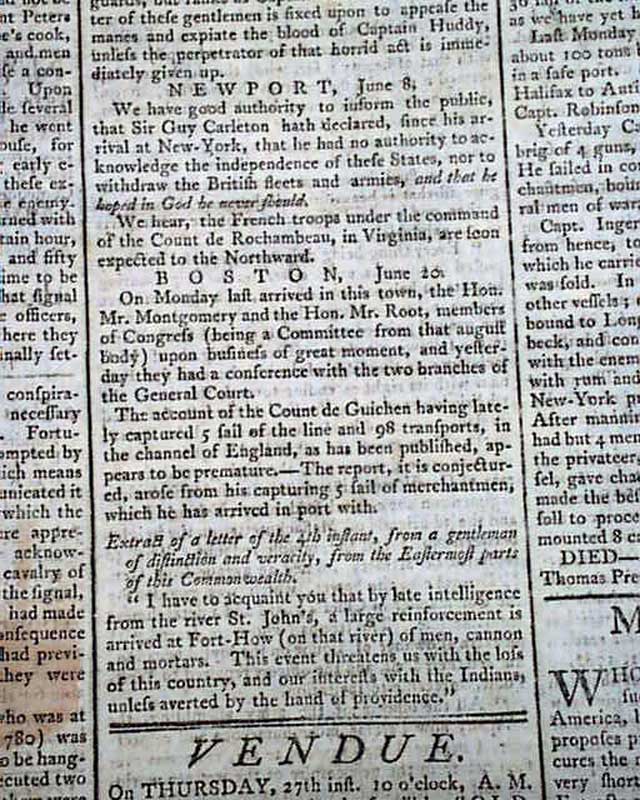 nt Peters
e's cook,
and men
se a con-
Upon
le several
he went
ouse, for
early e-
these ex-
e enemy.
rned with
tain hour,
and fifty
ime to be
hat signal
e officers,
here they
inally set-
conspira-
necessary
Fortu-
ompted by
ich means
unicated it
which the
re appre-
acknow-
cavalry of
the signal,
had made
onsequence
had previ-
they were
who was at
780) was
o be hang-
ecuted two
ter of these gentlemen is fixed upon to appease the
manes and expiate the blood of Captain Huddy,
unless the perpetrator of that horrid act is imme-
diately given up.
NEWPORT, June 8.
We have good authority to inform the public,
that Sir Guy Carleton hath declared, since his ar-
rival at New-York, that he had no authority to ac-
knowledge the independence of these States, nor to
withdraw the British fleets and armies, and that he
hoped in God he never should.
We hear, the French troops under the command
of the Count de Rochambeau, in Virginia, are soon
expected to the Northward.
BOSTON, June 20.
On Monday last arrived in this town, the Hon.
Mr. Montgomery and the Hon. Mr. Root, members
of Congress (being a Committee from that august
body) upon business of great moment, and yester-
day they had a conference with the two branches of
the General Court.
The account of the Count de Guichen having late-
ly captured 5 sail of the line and 98 transports, in
the channel of England, as has been published, ap-
pears to be premature.—The report, it is conjectur-
ed, arose from his capturing 5 sail of merchantmen,
which he has arrived in port with.
Extract of a letter of the 4th instant, from a gentleman
of distinction and veracity, from the Eastermost parts
of this Commonwealth.
" I have to acquaint you that by late intelligence
from the river St. John's, a large reinforcement is
arrived at Fort-How (on that river) of men, cannon
and mortars. This event threatens us with the loss
of this country, and our interests with the Indians,
unless averted by the hand of providence."
VENDUE.
On THURSDAY, 27th inst. 10 o'clock, A. M.
as we have yet
Last Monday
about 100 tons
in a safe port.
Halifax to
Capt. Robinson
Yesterday C
brig of 4 guns,
He sailed in co
chantmen, boun
ral men of war
Capt. Inger
from hence, to
which he carrie
was sold. In
other vessels;
bound to Lon
beck, and con
with the enem
with rum and
New-York pr
After mann
had but 4 men
the privateer,
sel, gave chac
made the be
soll to proce
mounted 8 ca
DIED—
Thomas Pre
M
WHO
America,
proposes p
cures the
very short